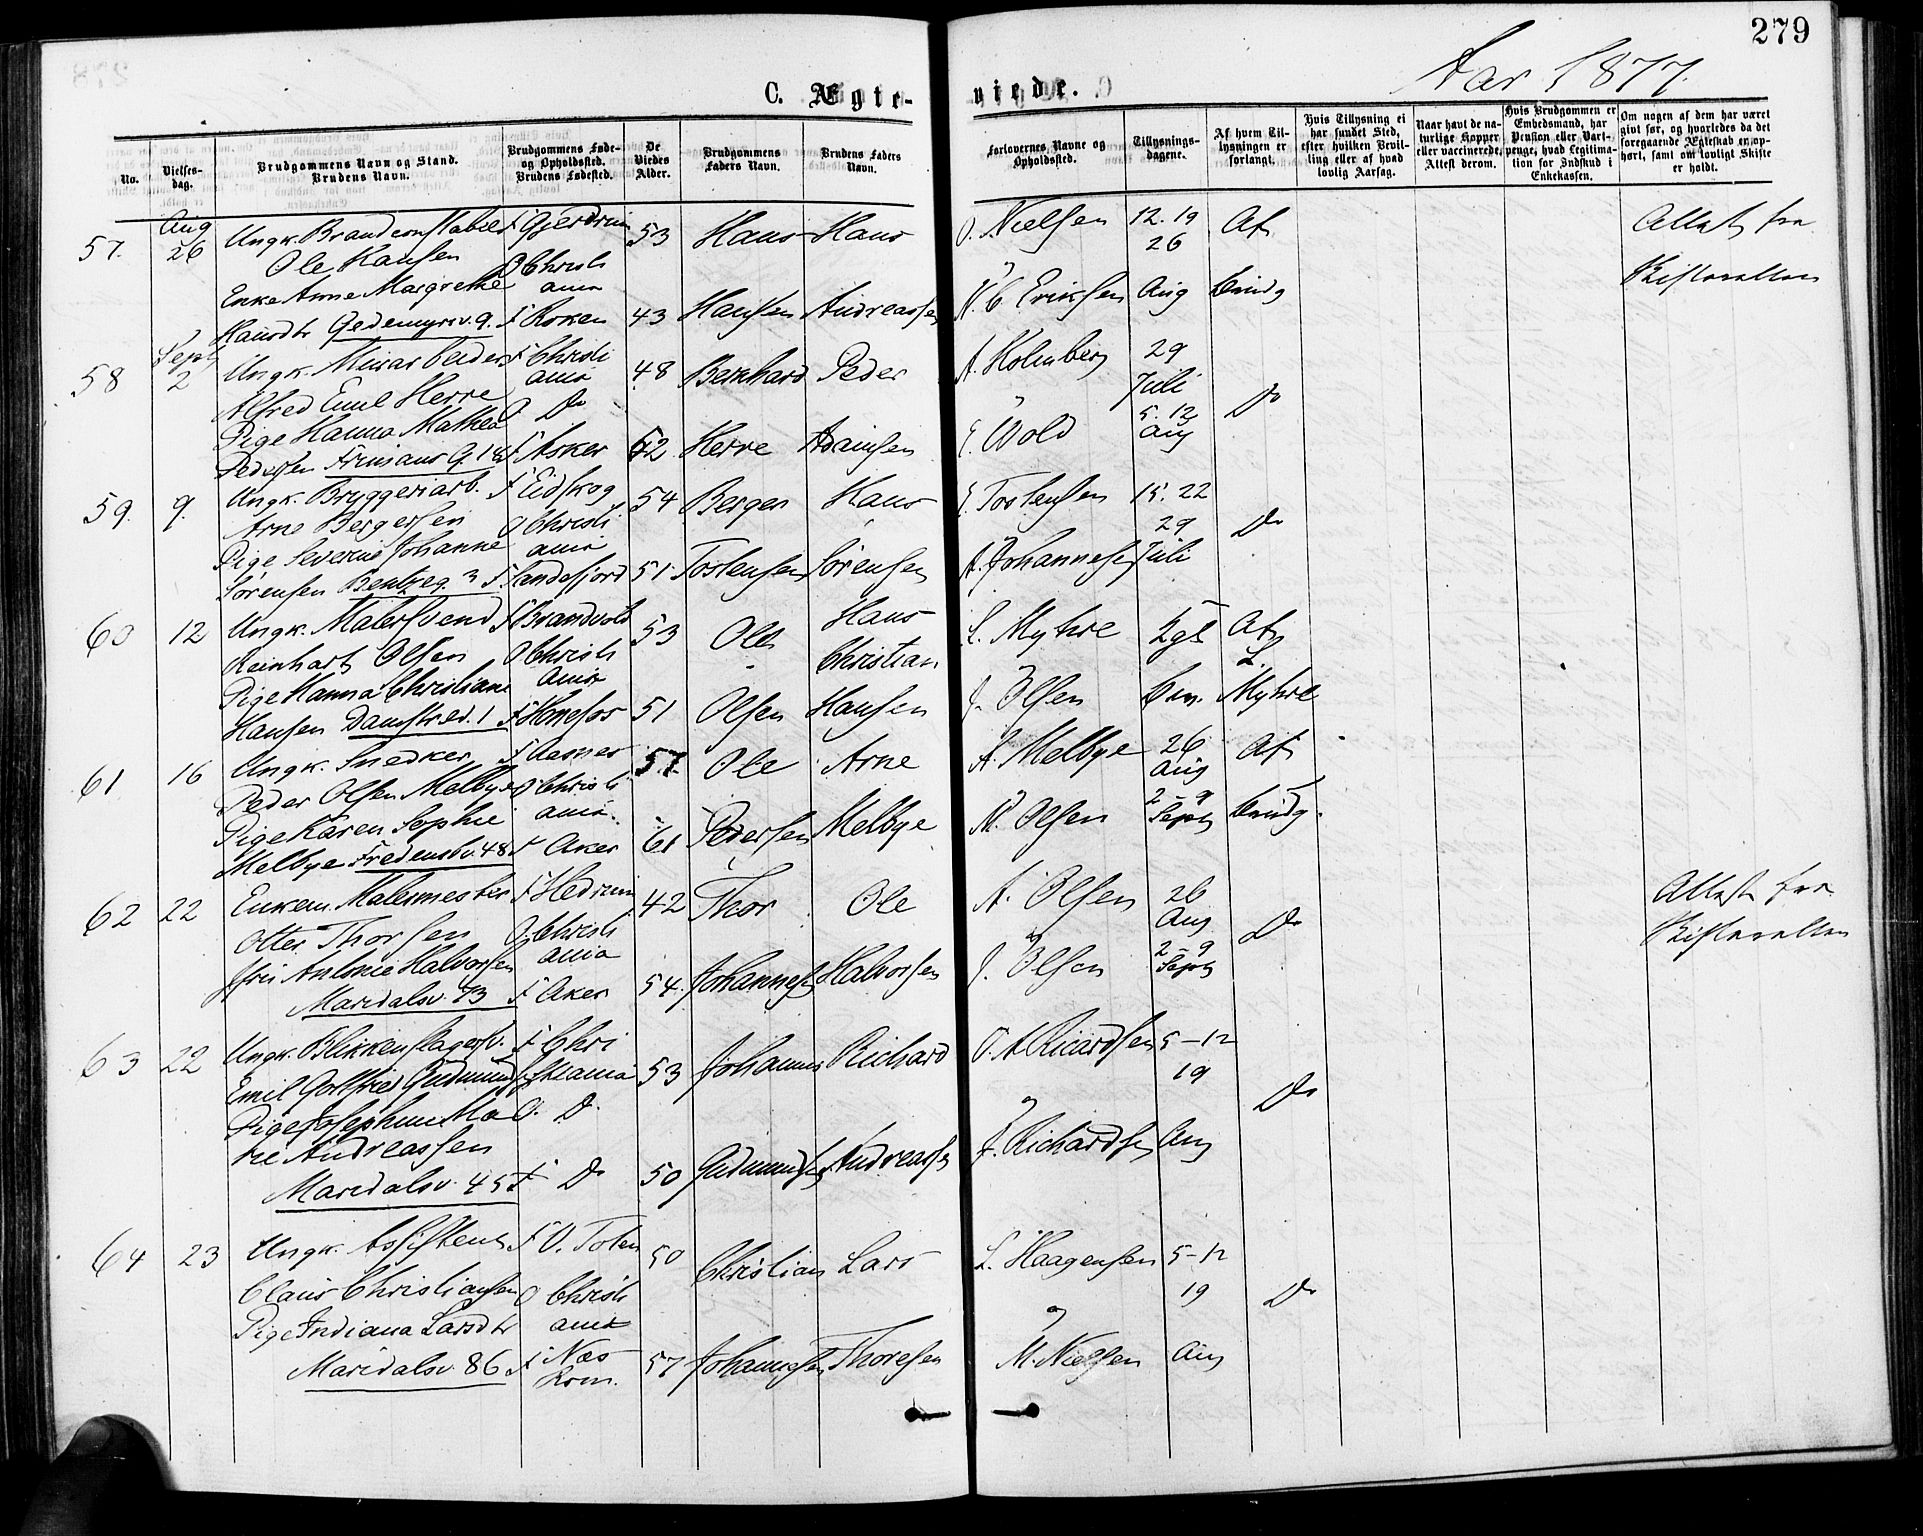 279
Aar 1877.
C. Ægte-
viede.
No.
Vielses-
dag.
Brudgommens Navn og Stand.
Brudens Navn.
Brudgommens Føde-
og Opholdssted.
Brudens Fødested.
De
Viedes
Alder.
Brudgommens
Faders Navn.
Brudens Faders
Navn.
Forlovernes Navne og
Opholdssted.
Tillysnings-
dagene.
Af hvem Til-
lysningen er
forlangt.
Hvis Tillysning ei
har fundet Sted,
efter hvilken Bevil-
ling eller af hvad
lovlig Aarsag.
Naar havt de na-
turlige Kopper
eller vaccinerede,
Attest derom.
Hvis Brudgommen er
Embedsmand, har
Pension eller Vart-
penge, hvad Legitima-
tion for Indskud i
Enkekassen.
Om nogen af dem har været
gift før, og hvorledes da det
foregaaende Ægteskab er op-
hørt, samt om lovligt Skifte
er holdt.
57. Aug 26
Ungk. Brandconstabel
Ole Hansen
Enke Anne Margrethe
Hansdtr Gedemyrsv. 9.
F Gjerdrum
O Christi
ania
F Røken
53 Hans Hans
43 Hansen Andreassen
O. Nielsen 12. 19 Af
26
N. C. Eriksen Aug Brudg
Attest fra
Skifteretten
58 Septr 2
Ungk. Murarbeider
Alfred Emil Herre
Pige Hanna Mathea
Pedersen
F Christi
ania
O Do
F Asker
48 Bernhard Peder
52 Herre
A. Holmberg 29
Juli
5. 12 Do
E. Wold Aug
59. 9.
Ungk. Bryggeriarb.
Arne Bergersen
Pige Severine Johanne
Sørensen Bentzeg. 3
F Eidskog
O Christi
ania
F. Sandefjord
54 Berger Hans
51 Tostensen Sørensen
E. Tostensen 15. 22
29 Do
A. Johannesen Juli
60 12
Ungk. Malersvend
Reinhart Olsen
Pige Hanna Christiane
Hansen Damstred. 1
F Brandvold
O Christi
ania
F Hønefos
53 Ole Hans
Christian
51 Olsen Hansen
L. Myhre Kgl Af
L.
J. Olsen Bev. Myhre
61 16
Ungk. Snedker
Peder Olsen Melbye
Pige Karen Sophie
Melbye Fredensbv. 48
F Aasnes
O Christi
ania.
F Aker
57. Ole Arne
61 Pedersen Melbye
A. Melbye 26 Af
Aug
2 - 9
M. Olsen Septr Brudg.
62 22
Enkem. Malermester
Otter Thorsen
Frk Antonie Halvorsen
Maridalsv. 73
F Hedrum
O Christi
ania
F Aker
42 Thor Ole
54. Johannesen Halvorsen
A. Olsen 26
Aug Do
2 - 9
J. Olsen Septr
Attest fra
Skifteretten
63 22
Ungk. Blikkenslagersv.
Emil Gottfried Gudmundsen
Pige Josephine Ma
rie Andreassen
Maridalsv. 45
F Chri
stiania
O. Do
F Do
53 Johannes Richard
50 Gudmundsen Andreassen
O. A Ricardsen 5 - 12
19
Do
J. Richardsen Aug
64 23
Ungk. Assistent
Claus Christiansen
Pige Indiana Larsdtr
Maridalsv. 86
F V. Toten
O Christi
ania
F Næs
Rom.
50 Christian Lars
57 Johannesen Thoresen
L. Haagensen 5 - 12
19 Do
og
M. Nielsen Aug